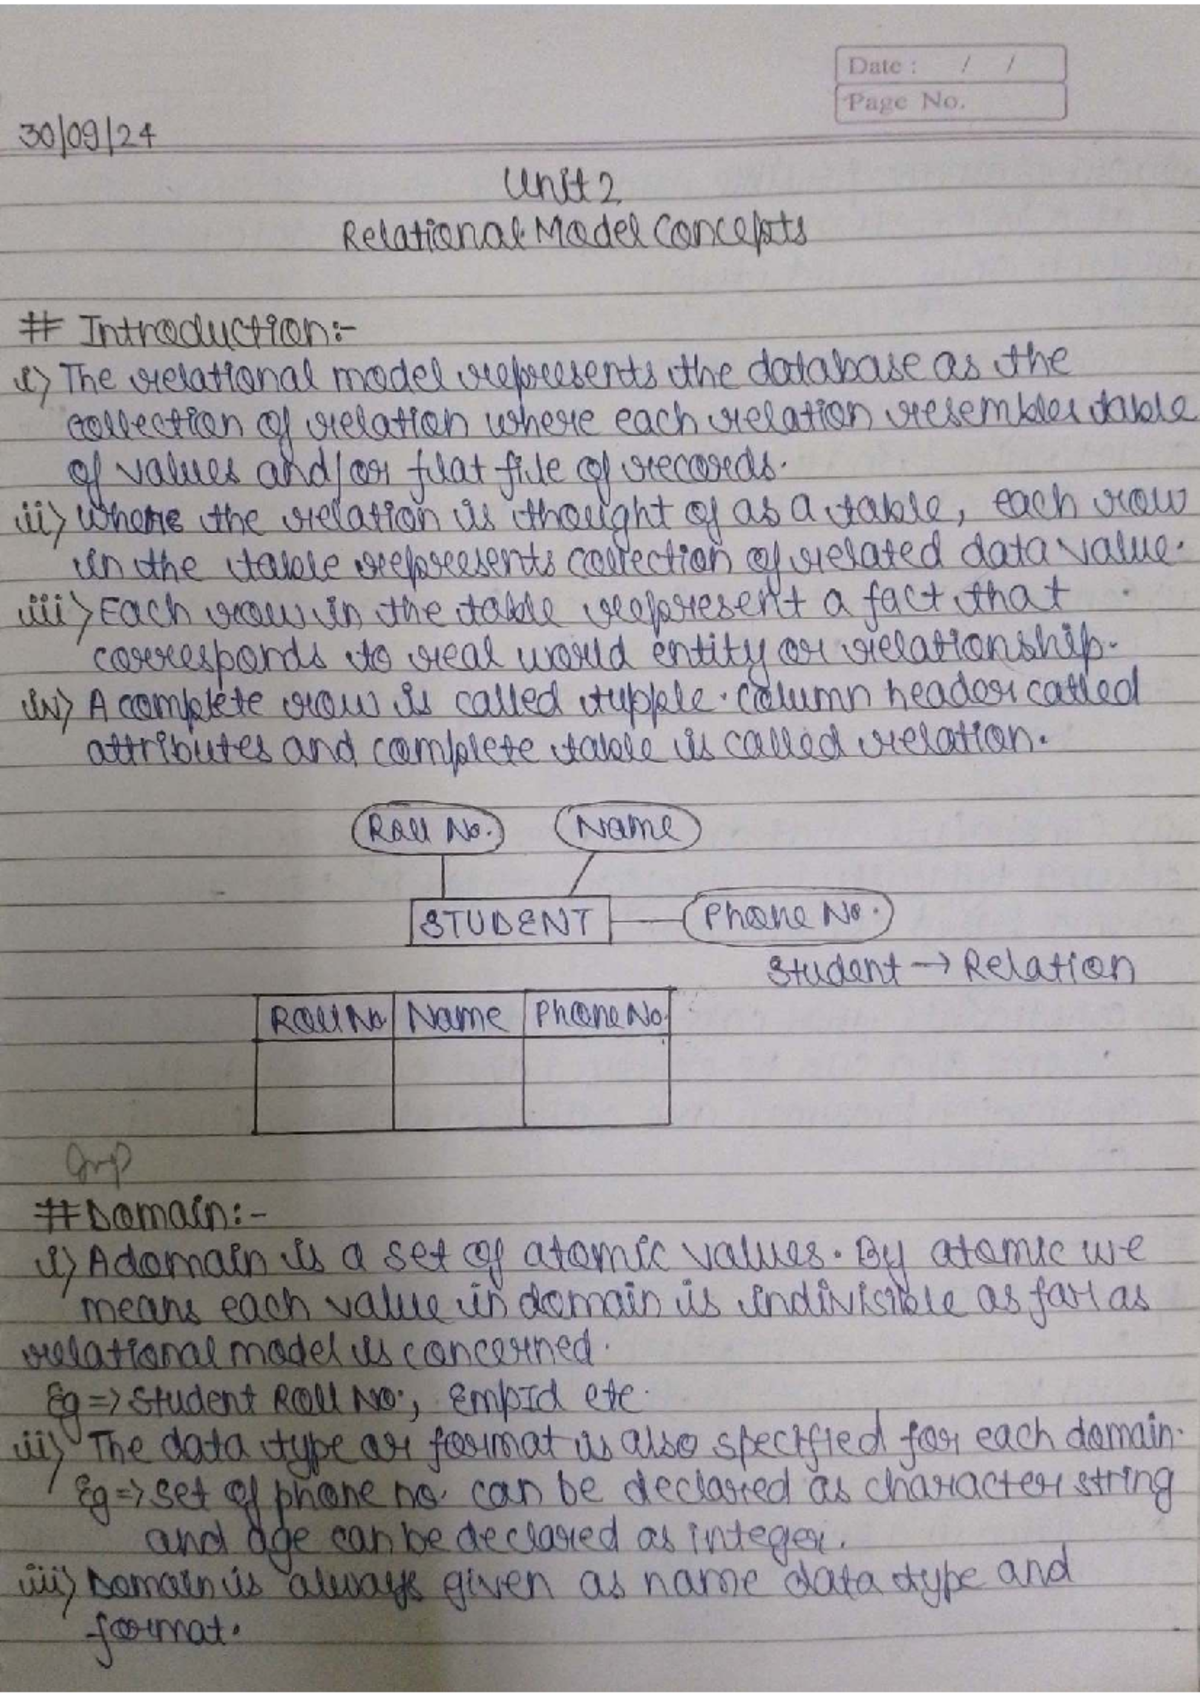 Date : / /
Page No.
30/09/24
Unit 2
Relational Model Concepts
# Introduction:-
i) The relational model represents the database as the
collection of relation where each relation resembles table
of values and/or flat file of records.
ii) Where the relation is thought of as a table, each row
in the table represents collection of related data value.
iii) Each row in the table represent a fact that
corresponds to real world entity or relationship.
iv) A complete row is called tupple. Column header called
attributes and complete table is called relation.
Roll No. Name
STUDENT Phone No.
Student → Relation
Roll No. Name Phone No.
Imp
# Domain:-
i) A domain is a set of atomic values. By atomic we
means each value in domain is indivisible as far as
relational model is concerned.
Eg => Student Roll No., EmpId etc.
ii) The data type or format is also specified for each domain.
Eg => set of phone no. can be declared as character string
and age can be declared as integer.
iii) Domain is always given as name data type and
format.